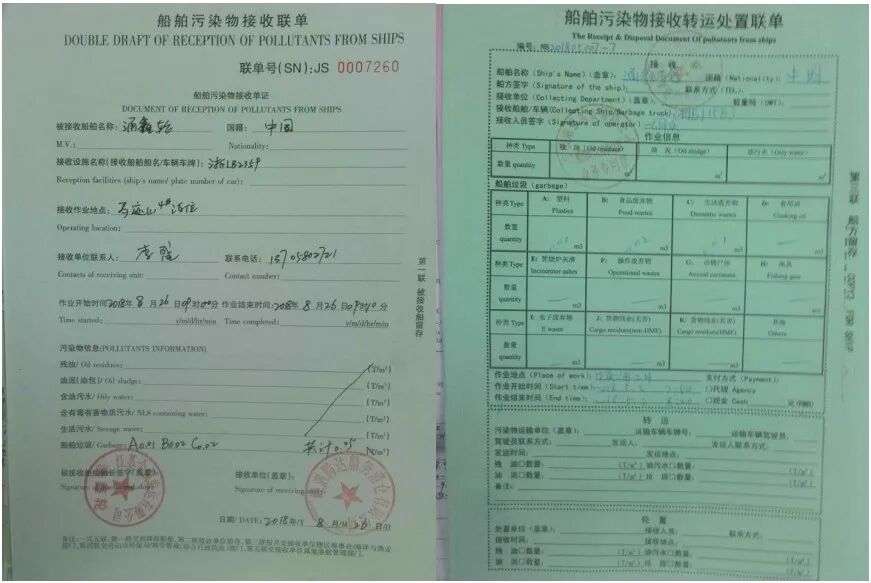 船舶污染物接收联单
DOUBLE DRAFT OF RECEPTION OF POLLUTANTS FROM SHIPS
联单号(SN):JS 0007260
船舶污染物接收单证
DOCUMENT OF RECEPTION OF POLLUTANTS FROM SHIPS
被接收船舶名称: 通鑫轮 国籍: 中国
M.V.: Nationality:
接收设施名称(接收船舶船名/车辆车牌):
Reception facilities (ship's name/ plate number of car):
接收作业地点:
Operating location:
接收单位联系人: 联系电话: 13705802721
Contacts of receiving unit: Contact number:
作业开始时间 2018年 8 月 26 日 09 时 00 分 作业结束时间: 2018年 8 月 26 日 09 时 40 分
Time started: y/m/d/hr/min Time completed: y/m/d/hr/min
污染物信息/(POLLUTANTS INFORMATION)
残油/ Oil residues: (T/m³)
油泥(油包)/ Oil sludge: (T/m³)
含油污水/ Oily water: (T/m³)
含有毒有害物质污水/ NLS containing water: (T/m³)
生活污水/ Sewage water: (T/m³)
船舶垃圾/ Garbage: A0.01 B0.02 C0.02 共计0.05
接收单位(盖章):
Signature of receiving
日期/ DATE: 2018 年/Y 8 月/M 26 日/D
第一联 被接收船留存
船舶污染物接收转运处置联单
The Receipt & Disposal Document Of pollutants from ships
编号:
接收
船舶名称(Ship's Name)(盖章): 国籍(Nationality): 中国
船方签字(Signature of the ship): 联系方式(TEL):
接收单位(Collecting Department)(盖章): 载重吨(DWT):
接收船舶/车辆(Collecting Ship/Garbage truck):
接收人员签字(Signature of operator):
作业信息
种类 Type 残 油 (Oil residues) 油 泥 (Oil sludge) 油污水 (Oily water)
数量 quantity m³ m³ m³
船舶垃圾 (garbage)
种类Type A: 塑料 Plastics B: 食品废弃物 Food wastes C: 生活废弃物 Domestic wastes D: 食用油 Cooking oil
数量 quantity m3 m3 m3 m3
种类Type E: 焚烧炉灰渣 Incinerator ashes F: 操作废弃物 Operational wastes G: 动物尸体 Animal carcasses H: 渔具 Fishing gear
数量 quantity m3 m3 m3 m3
种类Type I: 电子废弃物 E-waste J: 货物残余(无害) Cargo residues(non-HME) K: 货物残余(有害) Cargo residues(HME) 其他 Others
数量 quantity m3 m3 m3 m3
作业地点 (Place of work): 支付方式 (Payment):
作业开始时间 (Start time): 口代理 Agency
作业结束时间 (End time): 口现金 Cash 元(RMB)
转 运
污染物运输单位(盖章): 运输车辆车牌号: 运输车辆驾驶员:
驾驶员联系方式: 发运人: 发运人联系方式:
发运时间: 发运地点:
残 油口数量: (T/m³) 油污水口数量: (T/m³)
油 泥口数量: (T/m³) 垃 圾口数量: (T/m³)
备注:
处 置
处置单位(盖章): 接收人员: 联系方式:
接收时间: 接收地点:
残 油口数量: (T/m³) 油污水口数量: (T/m³)
油 泥口数量: (T/m³) 垃 圾口数量: (T/m³)